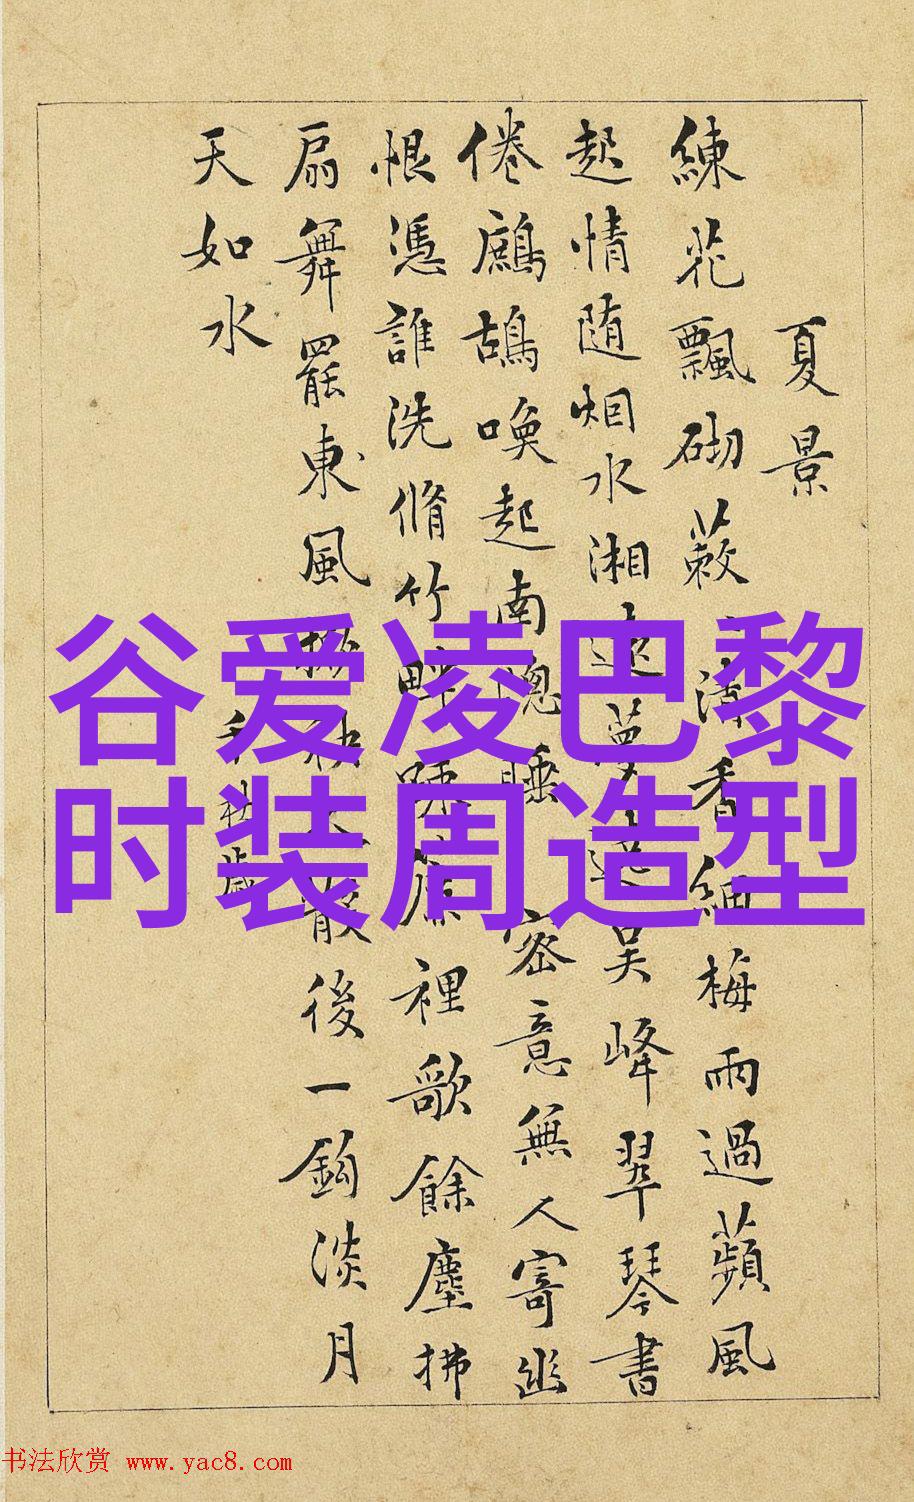 夏景
練花飄砌蔌〻清香細梅雨過蘋風
起情随烟水湘遠夢遶吴峰翠琴書
倦鷓鴣喚起南窻睡密意無人寄幽
恨憑誰洗脩竹畔踈簾裡歌餘塵拂
扇舞罷東風掀袂人散後一鈎淡月
天如水
千秋歲
谷爱凌巴黎
时装周造型
书法欣赏 www.yac8.com